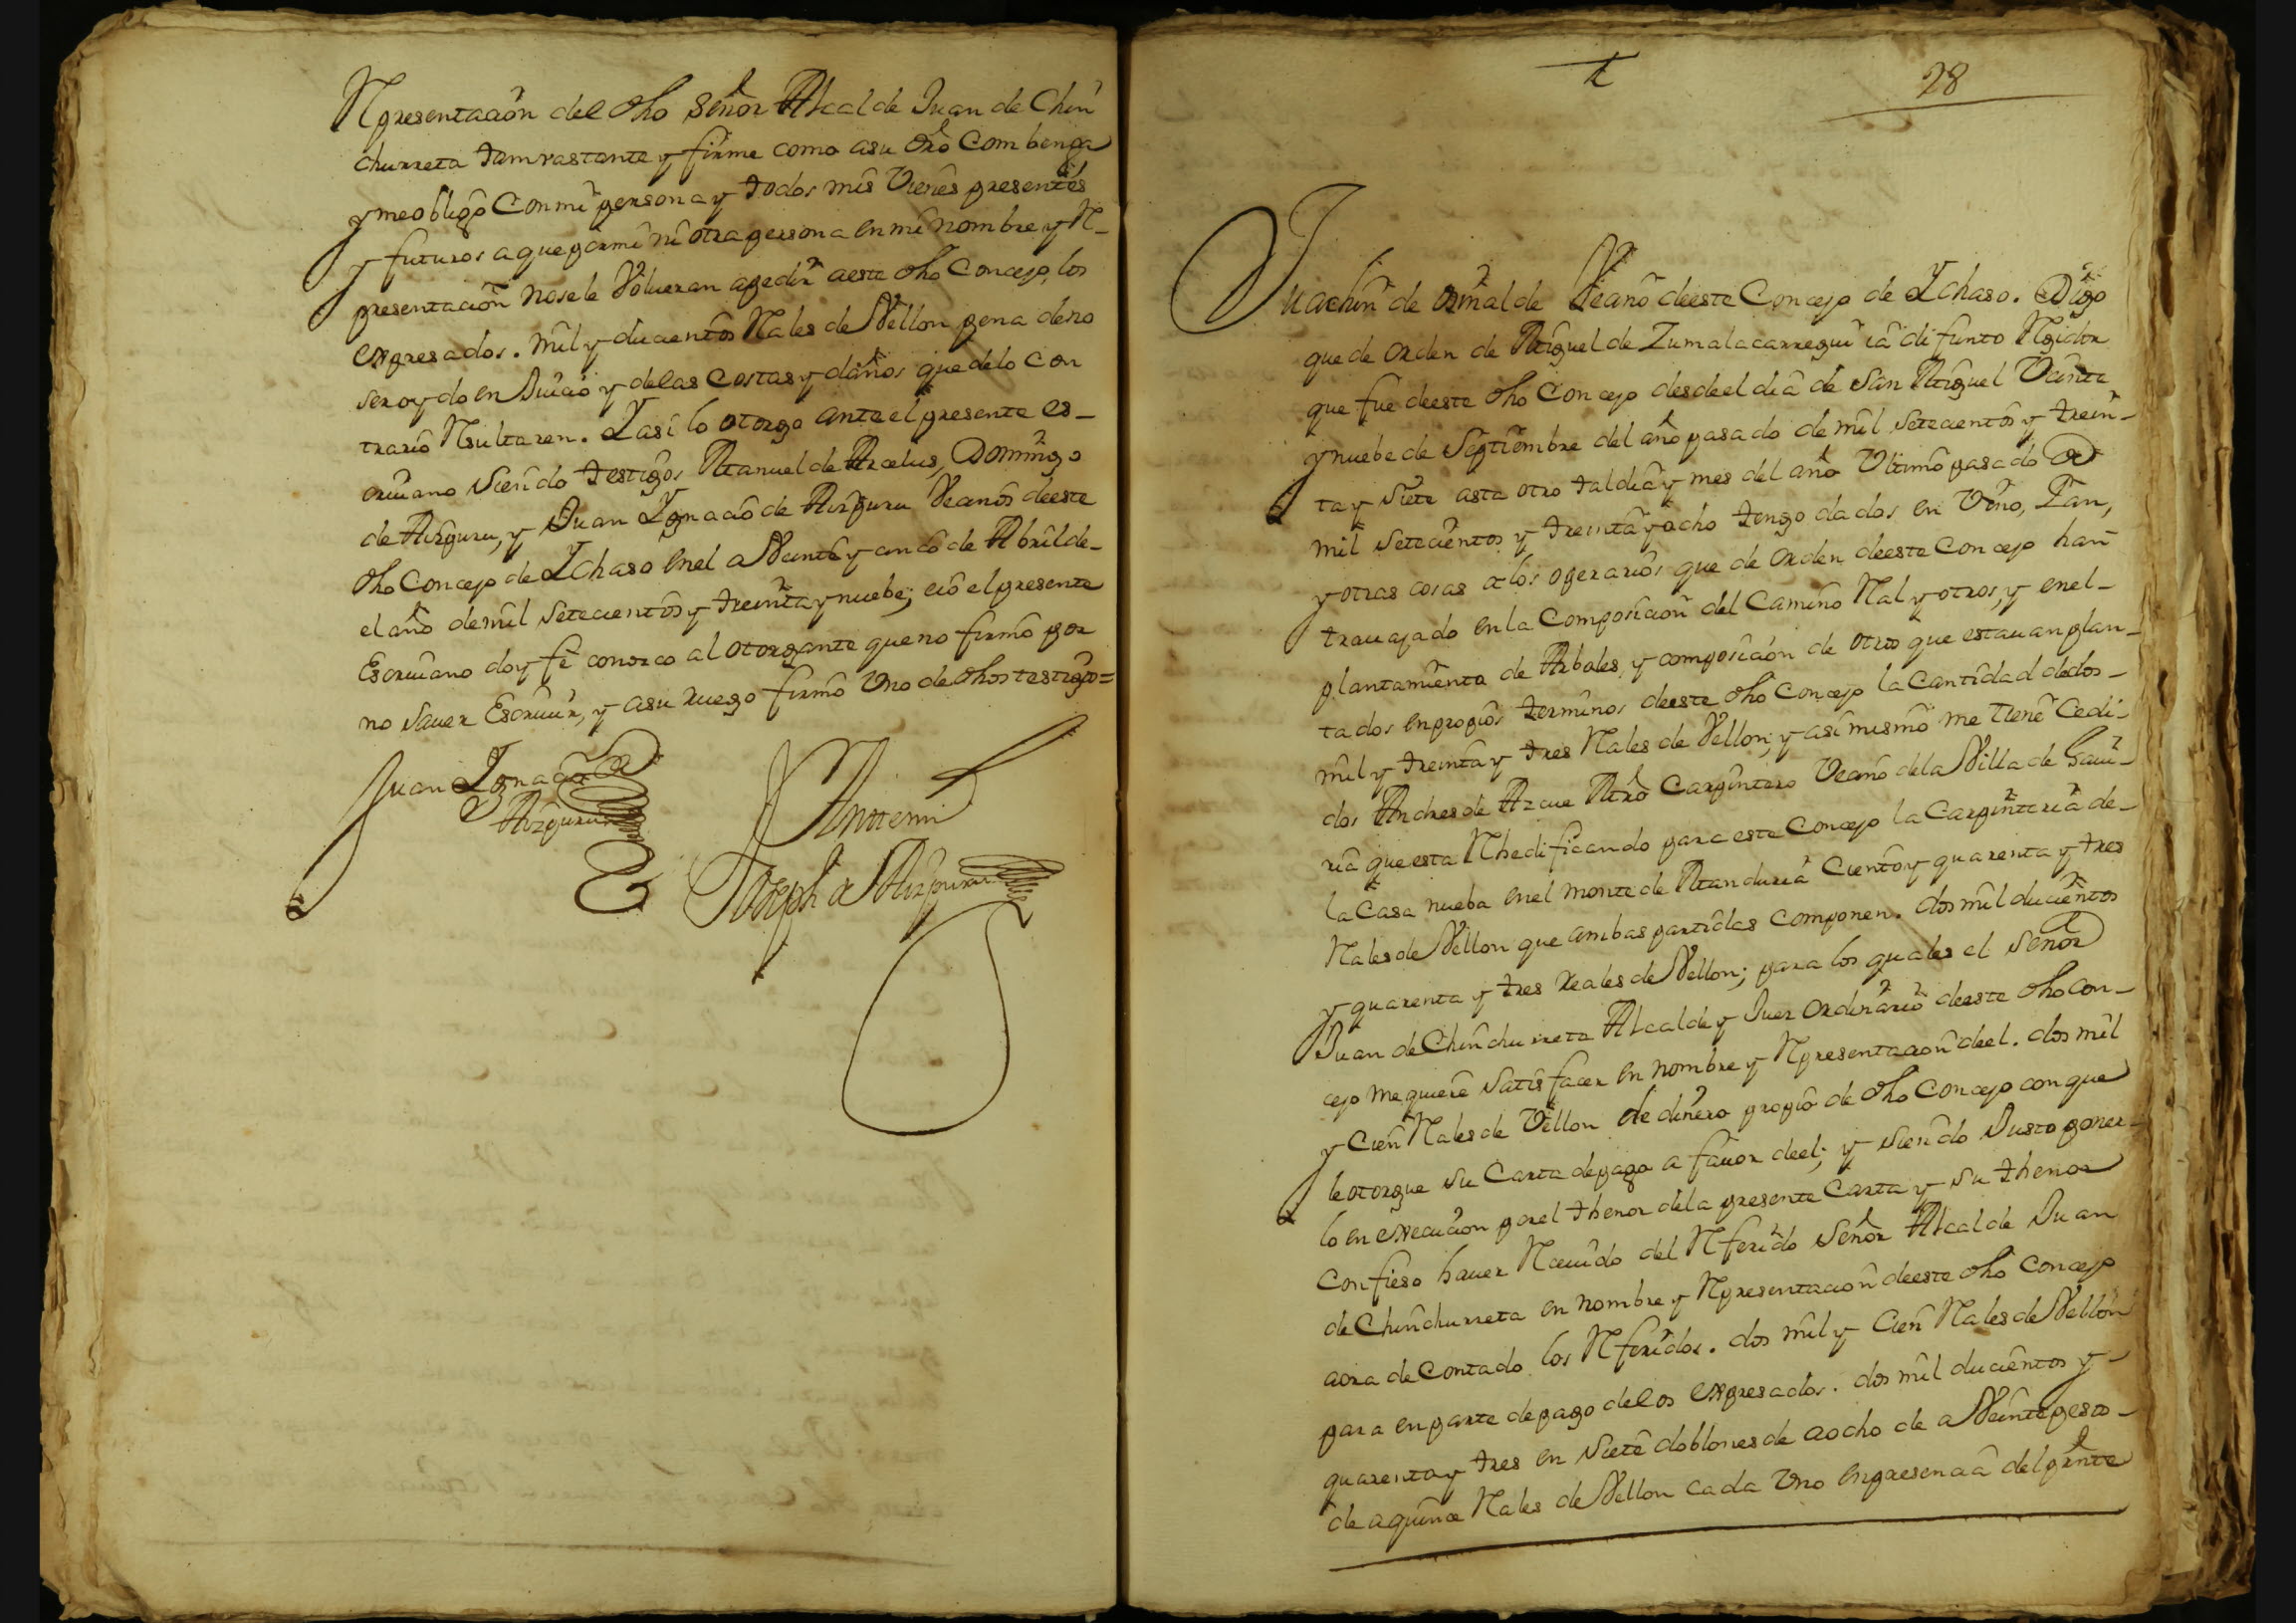 Representaçion del dho Señor Alcalde Juan de Chin
churreta tam vastante y firme como a su dro combenga
y me obligo Con mi persona y todos mis Vienes presentes
y futuros a que por mi ni otra persona en mi nombre y Re-
presentaçion no se le Volueran a pedir a este dho Concejo, los
expresados. mil y ducientos Reales de Vellon pena de no
ser oydo en Juicio y de las Costas y daños que de lo con
trario Resultaren. Y asi lo otorgo ante el presente es-
criuano Siendo testigos Manuel de Arcelus, Domingo
de Aizpuru, y Juan Ygnacio de Aizpuru Vecinos de este
dho Concejo de Ychaso en el a Veinte y cinco de Abril de-
el año de mil Setecientos y treinta y nuebe; e io el presente
Escriuano doy fe conozco al otorgante que no firmó por
no Sauer Escriuir, y a su ruego firmó Uno de dhos testigos=
Juan Ygnacio de
Aizpuru
Ante mi
Joseph de Aizpuru
28
Juachin de Ormalde Vecino de este Concejo de Ychaso. Digo
que de orden de Miguel de Zumalacarregui ia difunto Rejidor
que fue de este dho Concejo desde el dia de San Miguel Veinte
y nuebe de Septiembre del año pasado de mil Setecientos y trein-
ta y Siete asta otro tal dia y mes del año Ultimo pasado de
mil Setecientos y treinta y ocho tengo dados en Vino, Pan,
y otras cosas a los operarios que de orden de este Concejo han
trauajado en la Composicion del Camino Real y otros, y en el-
plantamiento de Arboles, y composicion de otros que estauan plan-
tados en propios terminos de este dho Concejo la Cantidad de dos-
mil y treinta y tres Reales de Vellon; y asi mismo me tiene Cedi-
dos Andres de Azcue Mro Carpintero Vecino de la Villa de Gaui-
ria que esta Rehedificando para este Concejo la Carpinteria de-
la Casa nueba en el monte de Manduria Ciento y quarenta y tres
Reales de Vellon que ambas partidas componen. dos mil ducientos
y quarenta y tres Reales de Vellon; para los quales el Señor
Juan de Chinchurreta Alcalde y Juez Ordinario de este dho con-
cejo me quiere Satisfacer en nombre y Representacion de el. dos mil
y Cien Reales de Vellon de dinero propio de dho Concejo con que
le otorgue su Carta de pago a fauor de el; y Siendo Justo poner-
lo en execucion por el thenor de la presente Carta y su thenor
confieso hauer Receuido del Referido Señor Alcalde Juan
de Chinchurreta en nombre y Representacion de este dho Concejo
aora de Contado los Referidos. dos mil y Cien Reales de Vellon
para en parte de pago de los expresados. dos mil ducientos y-
quarenta y tres en Siete doblones de a ocho de a Veinte pesos-
de a quince Reales de Vellon cada Uno en presencia del prnte